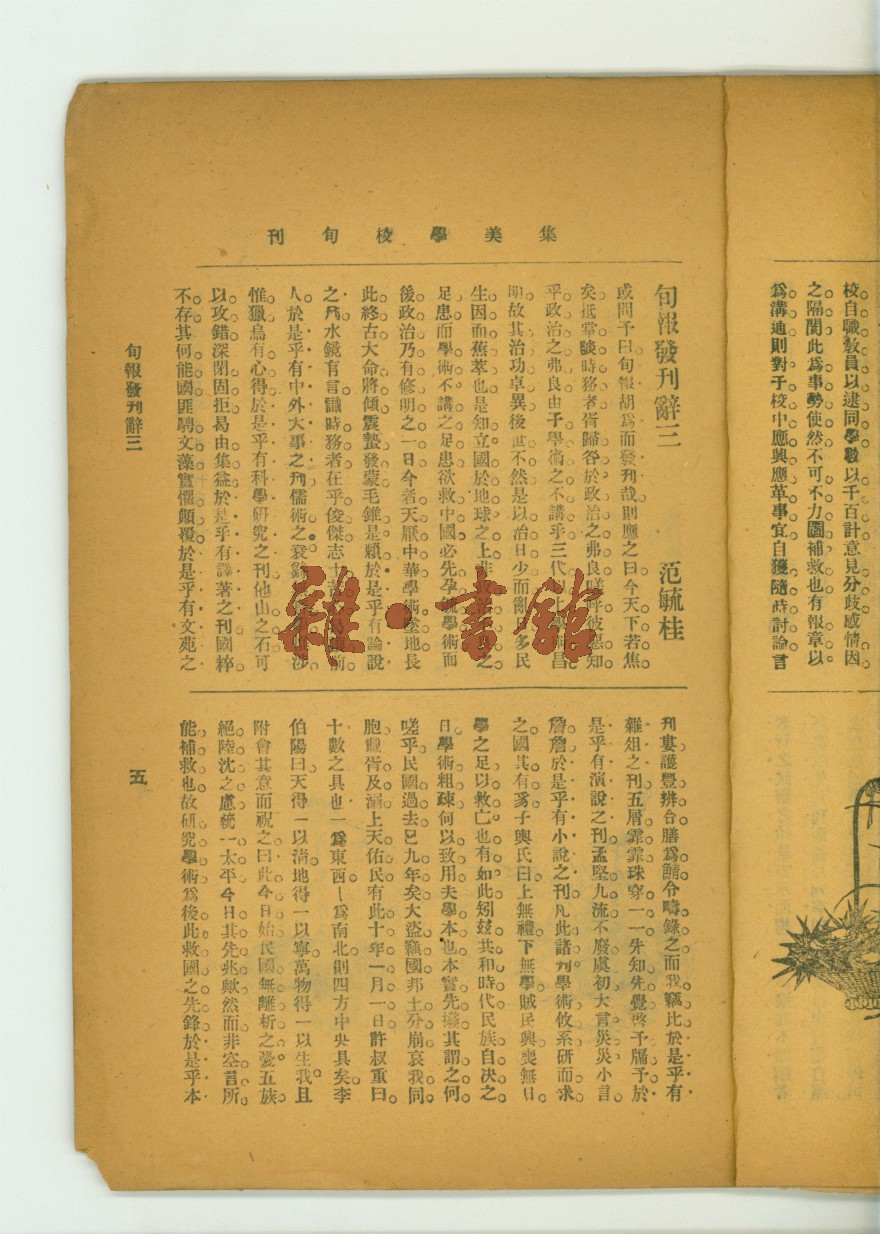 校自職教員以逮同學數以千百計意見分歧感情因
之隔閡此爲事勢使然不可不力圖補救也有報章以
爲溝通則對于校中應興應革事宜自獲隨時討論言
集美學校旬刊
旬報發刊辭三
范毓桂
或問予曰旬報胡爲而發刊哉則應之曰今天下若焦
矣抵掌談時務者胥歸咎於政治之弗良嗟呼彼惡知
乎政治之弗良由于學術之不講乎三代上學昌
明故其治功卓異後世不然是以治日少而亂多民
生因而蕉萃也是知立國於地球之上非政治之
足患而學術不講之足患欲救中國必先孕學術而
後政治乃有修明之一日今者天厭中華學術墜地長
此終古大命將傾震蟄發蒙毛錐是賴於是乎有論說
之刊水鏡有言識時務者在乎俊傑志士前
人於是乎有中外大事之刊儒術之衰涉
惟獵鳥有心得於是乎有科學研究之刊他山之石可
以攻錯深閉固拒曷由集益於是乎有譯著之刊國粹
不存其何能國匪騁文藻實懼顛覆於是乎有文苑之
刊婁護豐辨合膳爲鯖令疇錄之而我竊比於是乎有
雜俎之刊五屑霏霏珠穿一一先知先覺啓予牖予於
是乎有演說之刊孟堅九流不廢虞初大言炎炎小言
詹詹於是乎有小說之刊凡此諸刊學術攸系研而求
之國其有豸子輿氏曰上無禮下無學賊民興喪無日
學之足以救亡也有如此矧玆共和時代民族自決之
日學術粗疎何以致用夫學本也本實先撥其謂之何
嗟乎民國過去已九年矣大盜竊國邦土分崩哀我同
胞胥及溺上天佑民有此十年一月一日許叔重曰
十數之具也一爲東西丨爲南北則四方中央具矣李
伯陽曰天得一以清地得一以寧萬物得一以生我且
附會其意而祝之曰此今日始民國無離析之憂五族
絕陸沈之慮統一太平今日其先兆歟然而非空言所
能補救也故研究學術爲後此救國之先鋒於是乎本
旬報發刊辭三
五
雜·書館